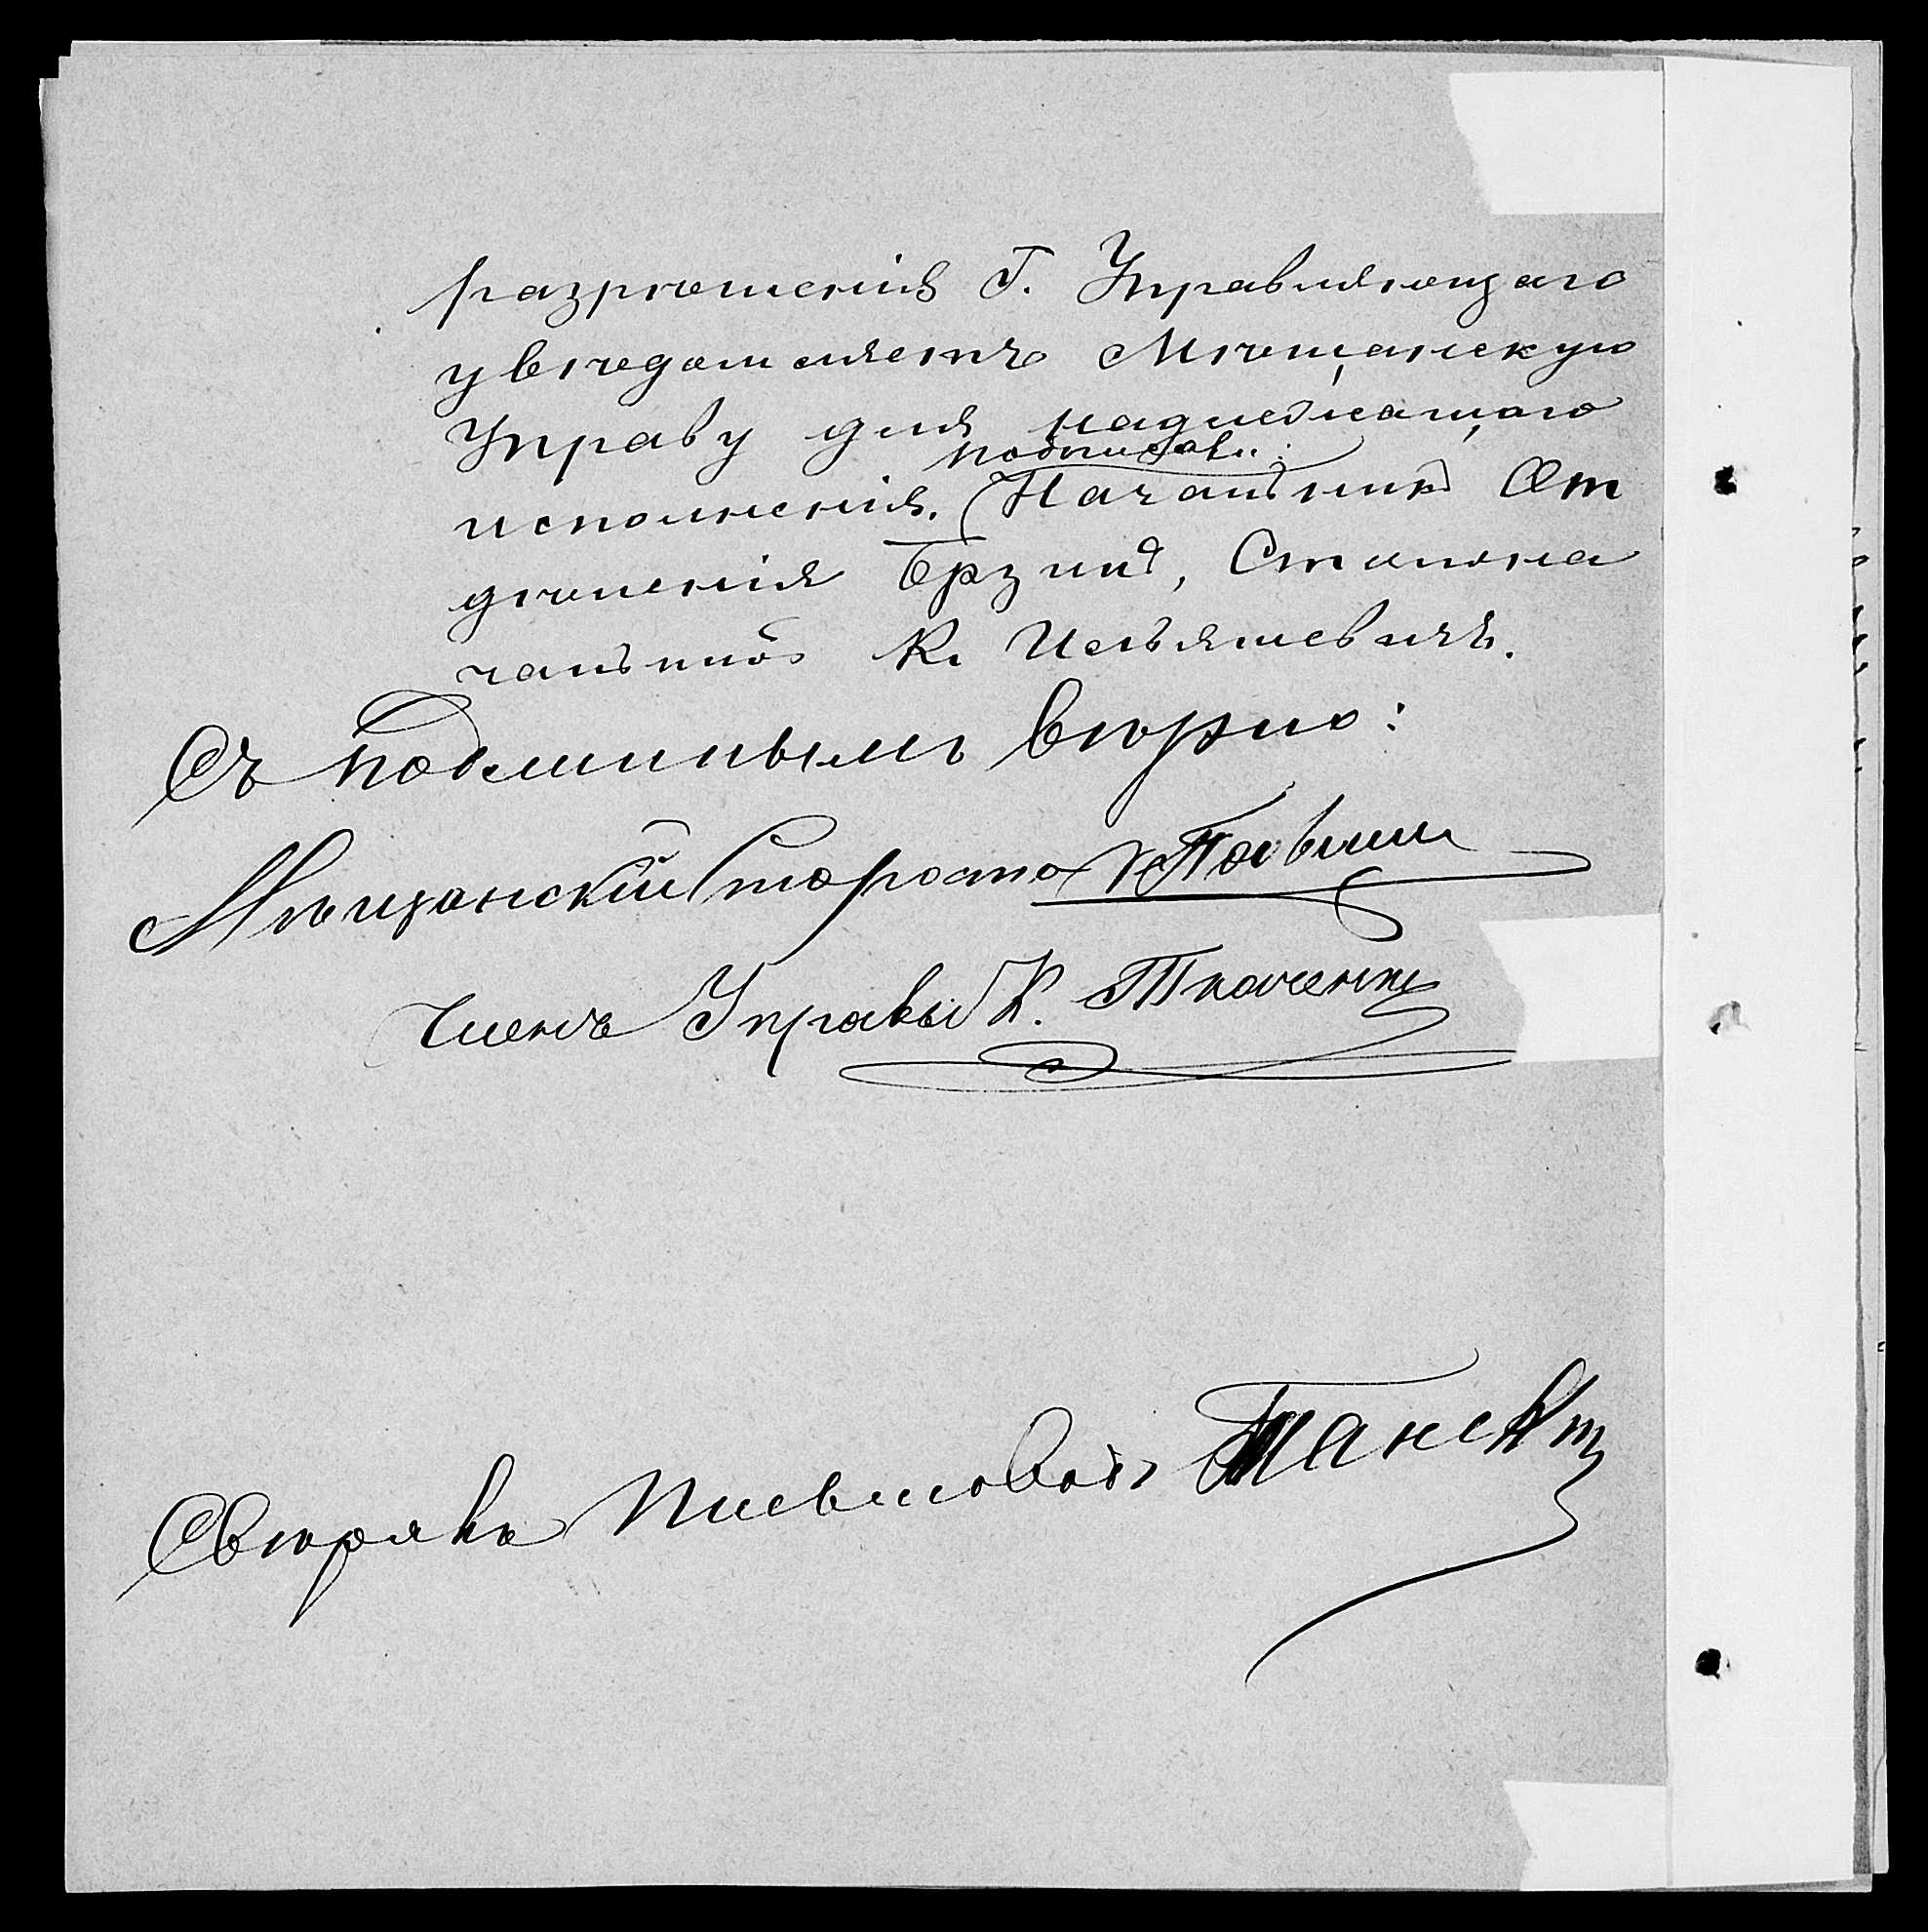 разрѣшенія Г. Управляющаго
увѣдомляетъ Мѣщанскую
Управу для надлежащаго
подписали:
исполненія. Начальникъ От
дѣленія Столона
чальникъ К. Ильяшевичъ.
Съ подлиннымъ вѣрно:
Мѣщанскій Староста
Членъ Управы К. Ткаченко
Свѣрялъ Письмовод.